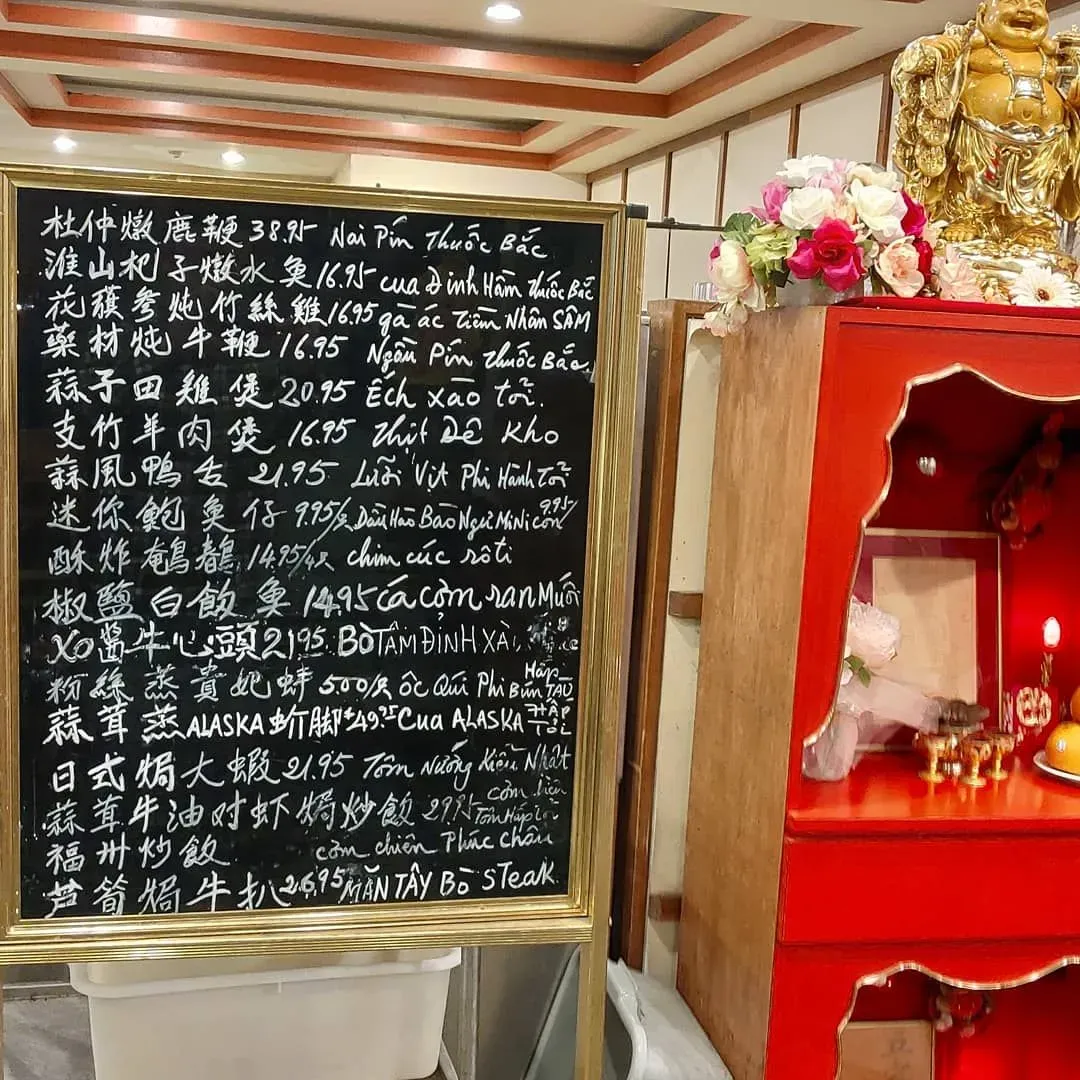 杜仲燉鹿鞭 38.95 Nai Pín Thuốc Bắc
淮山杞子燉水魚 16.95 cua Đinh Hầm Thuốc Bắc
花旗參炖竹絲雞 16.95 gà ác Tiềm Nhân SÂM
藥材炖牛鞭 16.95 Ngầu Pín Thuốc Bắc
蒜子田雞煲 20.95 Ếch xào tỏi.
支竹羊肉煲 16.95 Thịt Dê Kho
蒜風鴨舌 21.95 Lưỡi Vịt Phi Hành Tỏi
迷你鮑魚仔 9.95/只 Bào Ngư MiNi 9.95/con
酥炸鵪鶉 14.95/4只 chim cúc rôti
椒鹽白飯魚 14.95 cá cơm ran Muối
XO醬牛心頭 21.95 BÒ TÂM ĐỈNH XÀ
粉絲蒸貴妃蚌 5.00/只 ốc Qúi Phi Hấp Bún TÀU
蒜茸蒸ALASKA蚧脚 $49.25 Cua ALASKA HẤP TỎI
日式焗大蝦 21.95 Tôm Nướng Kiểu Nhật
蒜茸牛油对虾焗炒飯 29.95
福州炒飯 cơm chiên Phúc Châu
芦筍焗牛扒 26.95 MĂN TÂY BÒ STeak